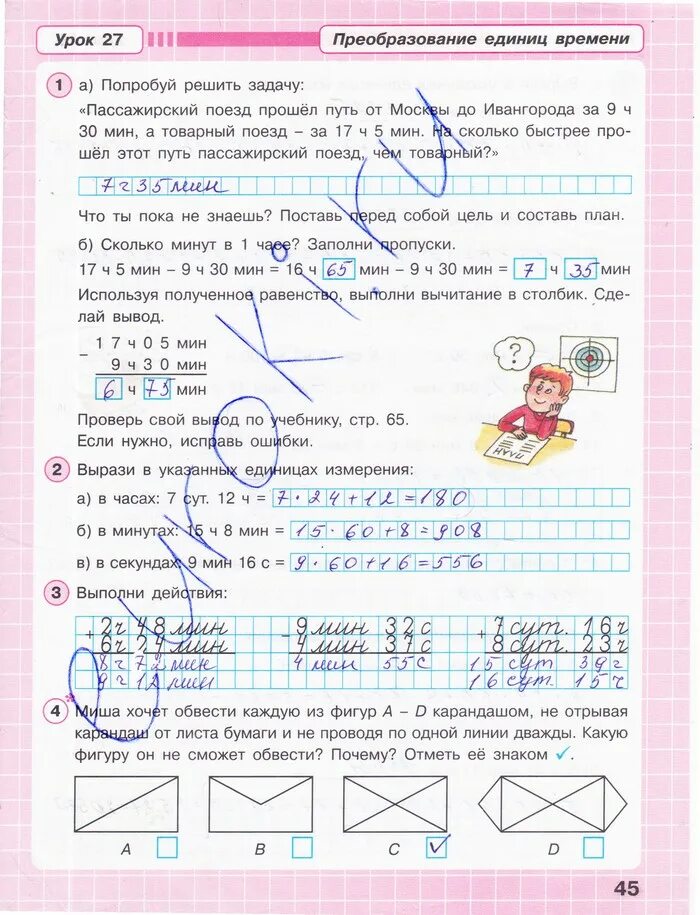 Урок 27
Преобразование единиц времени
1 а) Попробуй решить задачу:
«Пассажирский поезд прошёл путь от Москвы до Ивангорода за 9 ч
30 мин, а товарный поезд – за 17 ч 5 мин. На сколько быстрее про-
шёл этот путь пассажирский поезд, чем товарный?»
7 ч 35 мин
Что ты пока не знаешь? Поставь перед собой цель и составь план.
б) Сколько минут в 1 часе? Заполни пропуски.
17 ч 5 мин – 9 ч 30 мин = 16 ч 65 мин – 9 ч 30 мин = 7 ч 35 мин
Используя полученное равенство, выполни вычитание в столбик. Сде-
лай вывод.
– 17 ч 05 мин
9 ч 30 мин
6 ч 75 мин
?
ПЛАН
Проверь свой вывод по учебнику, стр. 65.
Если нужно, исправь ошибки.
2 Вырази в указанных единицах измерения:
а) в часах: 7 сут. 12 ч = 7 · 24 + 12 = 180
б) в минутах: 15 ч 8 мин = 15 · 60 + 8 = 908
в) в секундах: 9 мин 16 с = 9 · 60 + 16 = 556
3 Выполни действия:
+ 2ч 48 мин – 9 мин 32 с + 7 сут. 16 ч
6ч 24 мин 4 мин 37 с 8 сут. 23 ч
8ч 72 мин 4 мин 55 с 15 сут 39 ч
9ч 12 мин 16 сут 15 ч
4 Миша хочет обвести каждую из фигур A – D карандашом, не отрывая
карандаш от листа бумаги и не проводя по одной линии дважды. Какую
фигуру он не сможет обвести? Почему? Отметь её знаком ✓.
A B C ✓ D
45